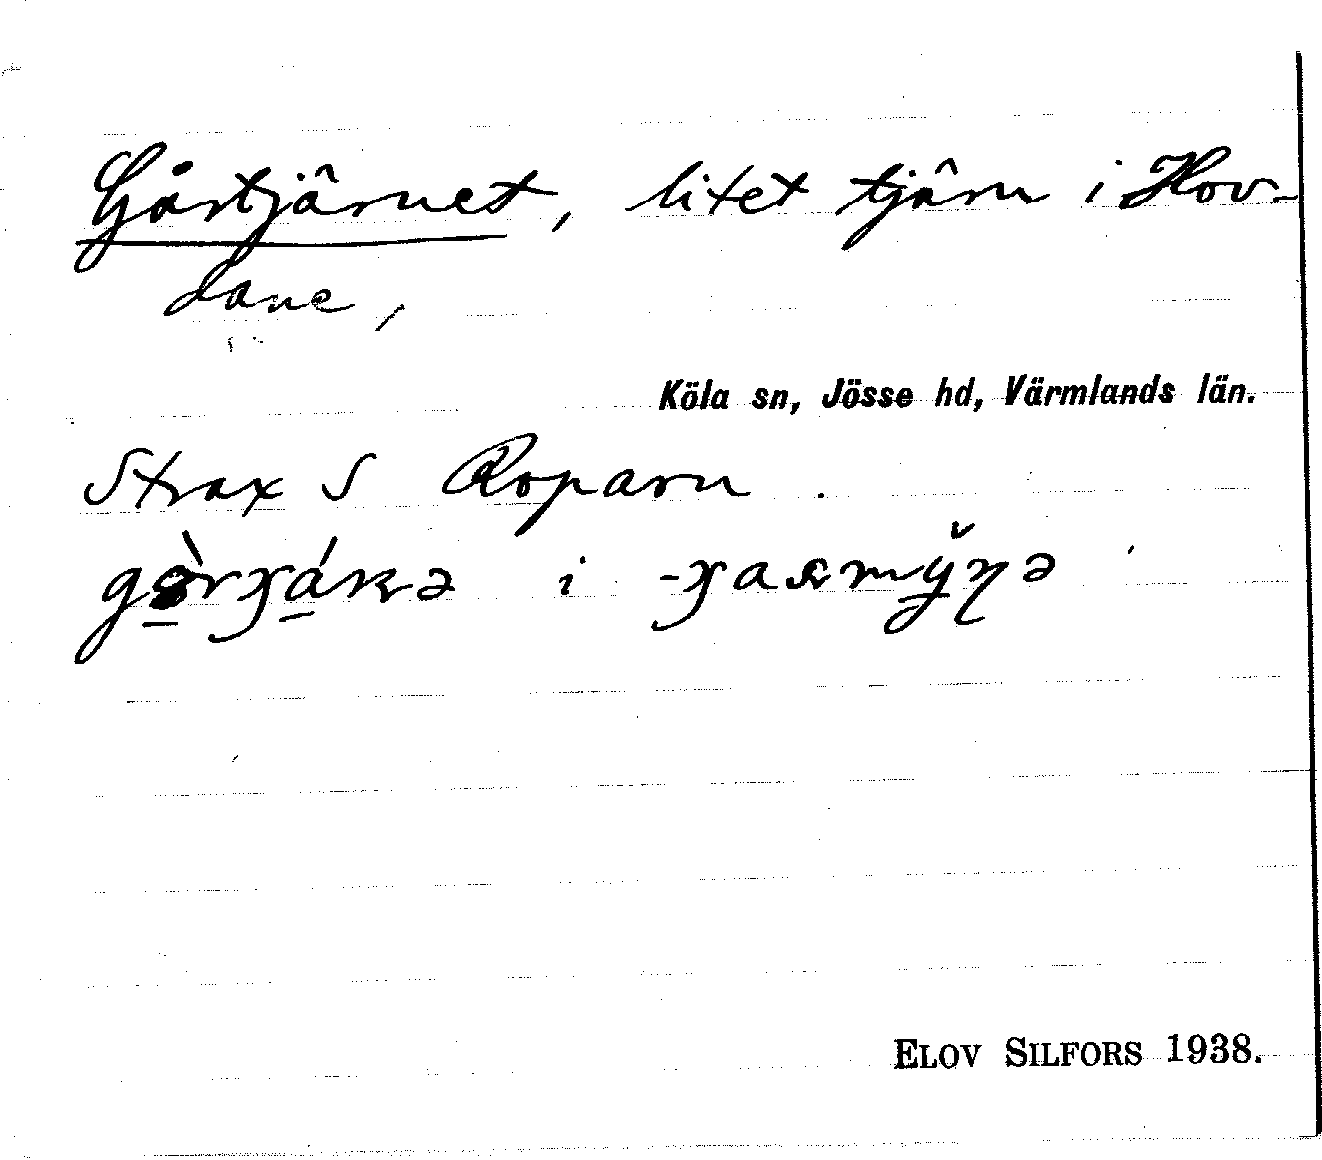 Gårtjärnet, litet tjärn i Hov-
dane,
Köla sn, Jösse hd, Värmlands län.
Strax S Roparn.
i
ELOV SILFORS 1938.